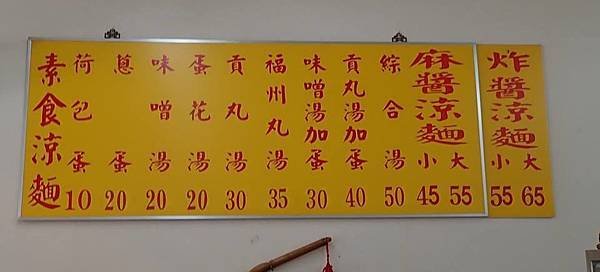 炸醬涼麵 小 55 大 65
麻醬涼麵 小 45 大 55
綜合湯 50
貢丸湯加蛋 40
味噌湯加蛋 30
福州丸湯 35
貢丸湯 30
蛋花湯 20
味噌湯 20
蔥蛋 20
荷包蛋 10
素食涼麵